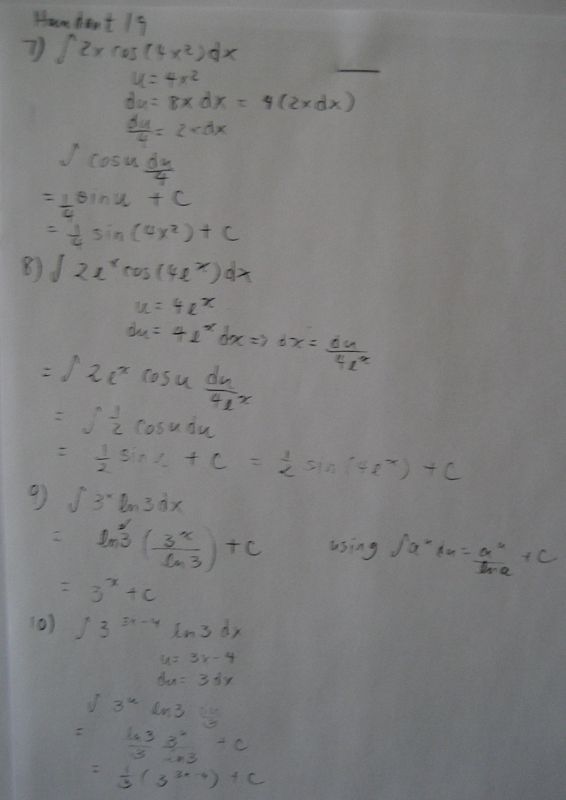 Handout 19
7) ∫ 2x cos(4x²)dx
u = 4x²
du = 8x dx = 4(2x dx)
du/4 = 2x dx
∫ cos u du/4
= 1/4 sin u + C
= 1/4 sin(4x²) + C
8) ∫ 2e^x cos(4e^x)dx
u = 4e^x
du = 4e^x dx => dx = du/4e^x
= ∫ 2e^x cos u du/4e^x
= ∫ 1/2 cos u du
= 1/2 sin u + C = 1/2 sin(4e^x) + C
9) ∫ 3^x ln3 dx
= ln3 (3^x/ln3) + C using ∫a^u du = a^u/ln a + C
= 3^x + C
10) ∫ 3^(3x-4) ln3 dx
u = 3x-4
du = 3dx
∫ 3^u ln3 du/3
= ln3/3 3^u/ln3 + C
= 1/3 (3^(3x-4)) + C